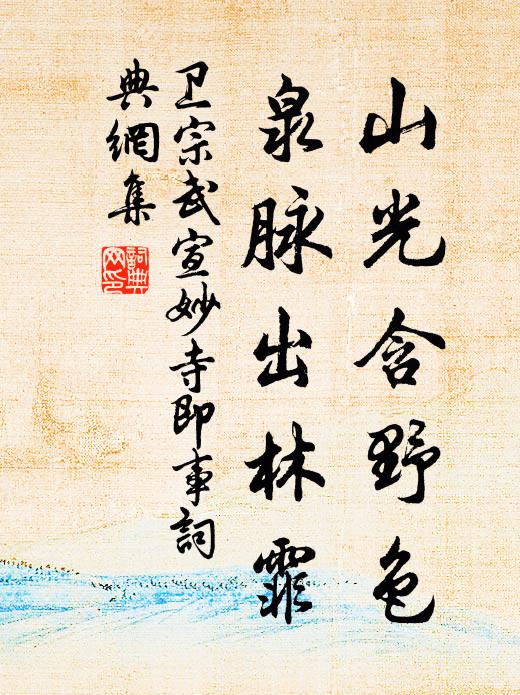 山光含野色
泉脉出林霏
卫宗武宣妙寺即事詞
典網集
詞典
网印